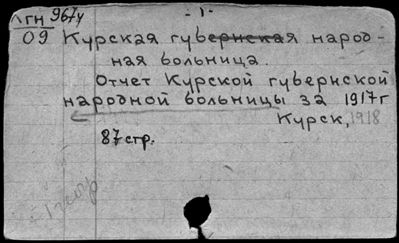 - 1 -
ЛГН 967у
09 Курская губернская народ-
ная больница.
Отчет Курской губернской
народной больницы за 1917г
Курск, 1918
87 стр.